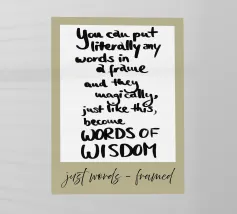 You can put
literally any
words in
a frame
and they
magically,
just like this,
become
WORDS OF
WISDOM
just words - framed